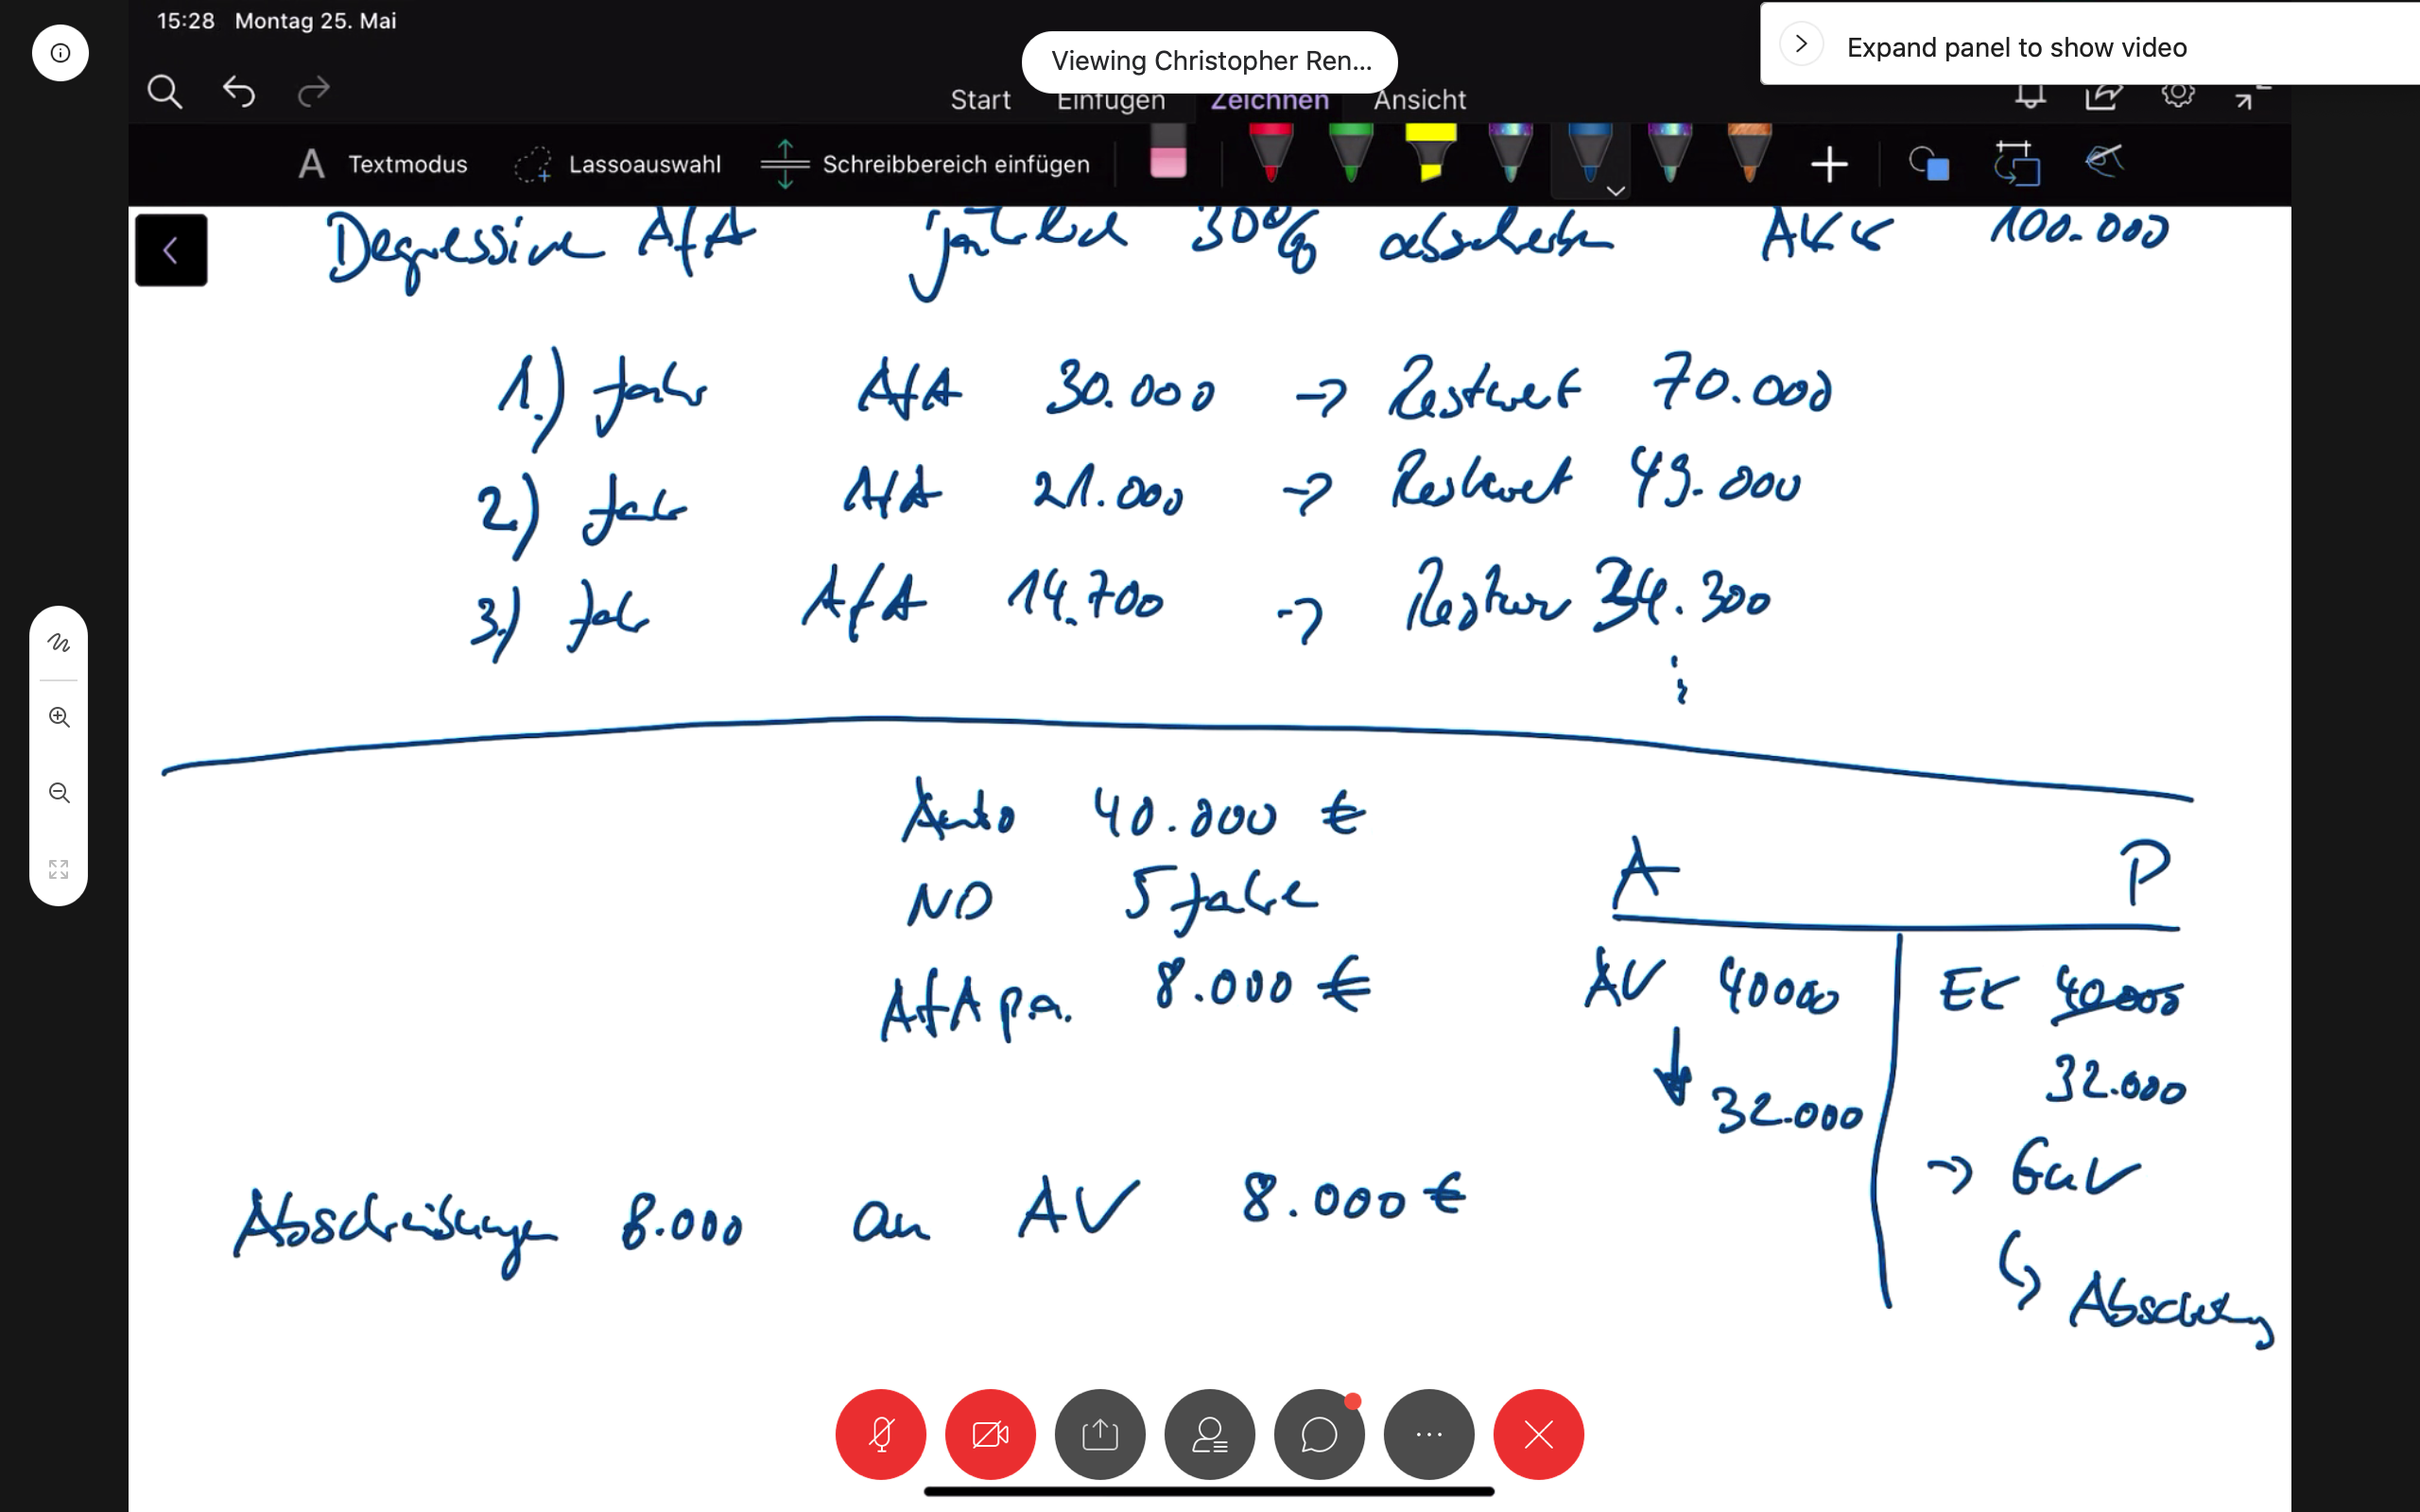 15:28 Montag 25. Mai
Viewing Christopher Ren...
Expand panel to show video
Start Einfügen Zeichnen Ansicht
A Textmodus Lassoauswahl Schreibbereich einfügen
Degressive AfA jährlich 30% abschreiben AKs 100.000
1.) Jahr AfA 30.000 → Restwert 70.000
2.) Jahr AfA 21.000 → Restwert 49.000
3.) Jahr AfA 14.700 → Restwer 34.300
Auto 40.000 €
ND 5 Jahre
AfA p.a. 8.000 €
A P
AV 40000 EK 40.000
32.000
32.000
→ GuV
Abschreibungen 8.000 an AV 8.000 €
Abschreibung